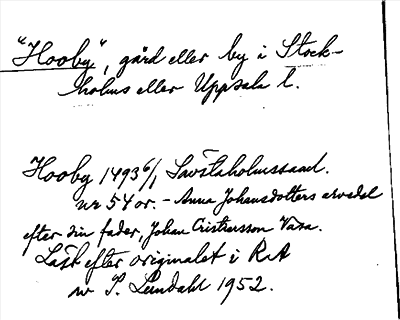 "Hooby", gård eller by i Stock-
holms eller Uppsala l.
Hooby 1493 6/1, Sävstaholmssaml.
nr 54 or. - Anna Johansdotters arvedel
efter sin fader, Johan Cristiernsson Vasa.
Läst efter originalet i RA
av S. Lundahl 1952.